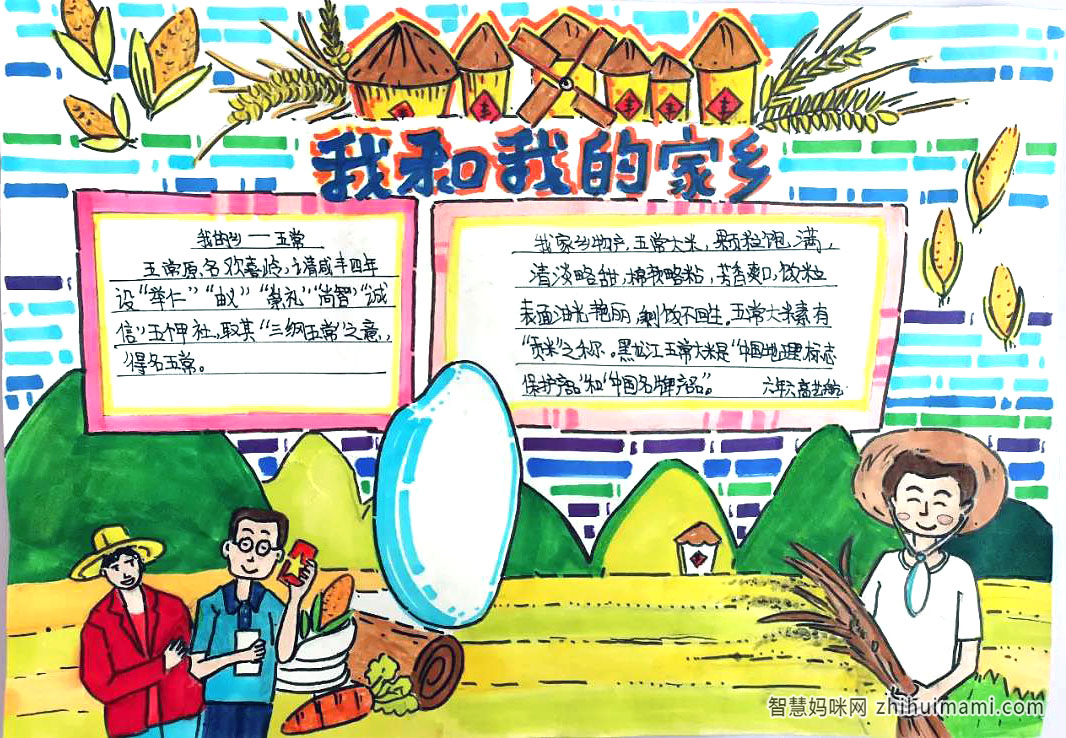 丰
丰
丰
丰
我和我的家乡
我的家乡——五常
五常原名欢喜岭,清咸丰四年
设“举仁”“由义”“崇礼”“尚智”“诚
信”五个甲社,取其“三纲五常”之意,
得名五常。
我家乡物产,五常大米,颗粒饱满,
清淡略甜,绵软略粘,芳香爽口,饭粒
表面油光艳丽,剩饭不回生。五常大米素有
“贡米”之称。黑龙江五常大米是“中国地理标志
保护产品”和“中国名牌产品”。
六年六 高
智慧妈咪网 zhihuimami.com